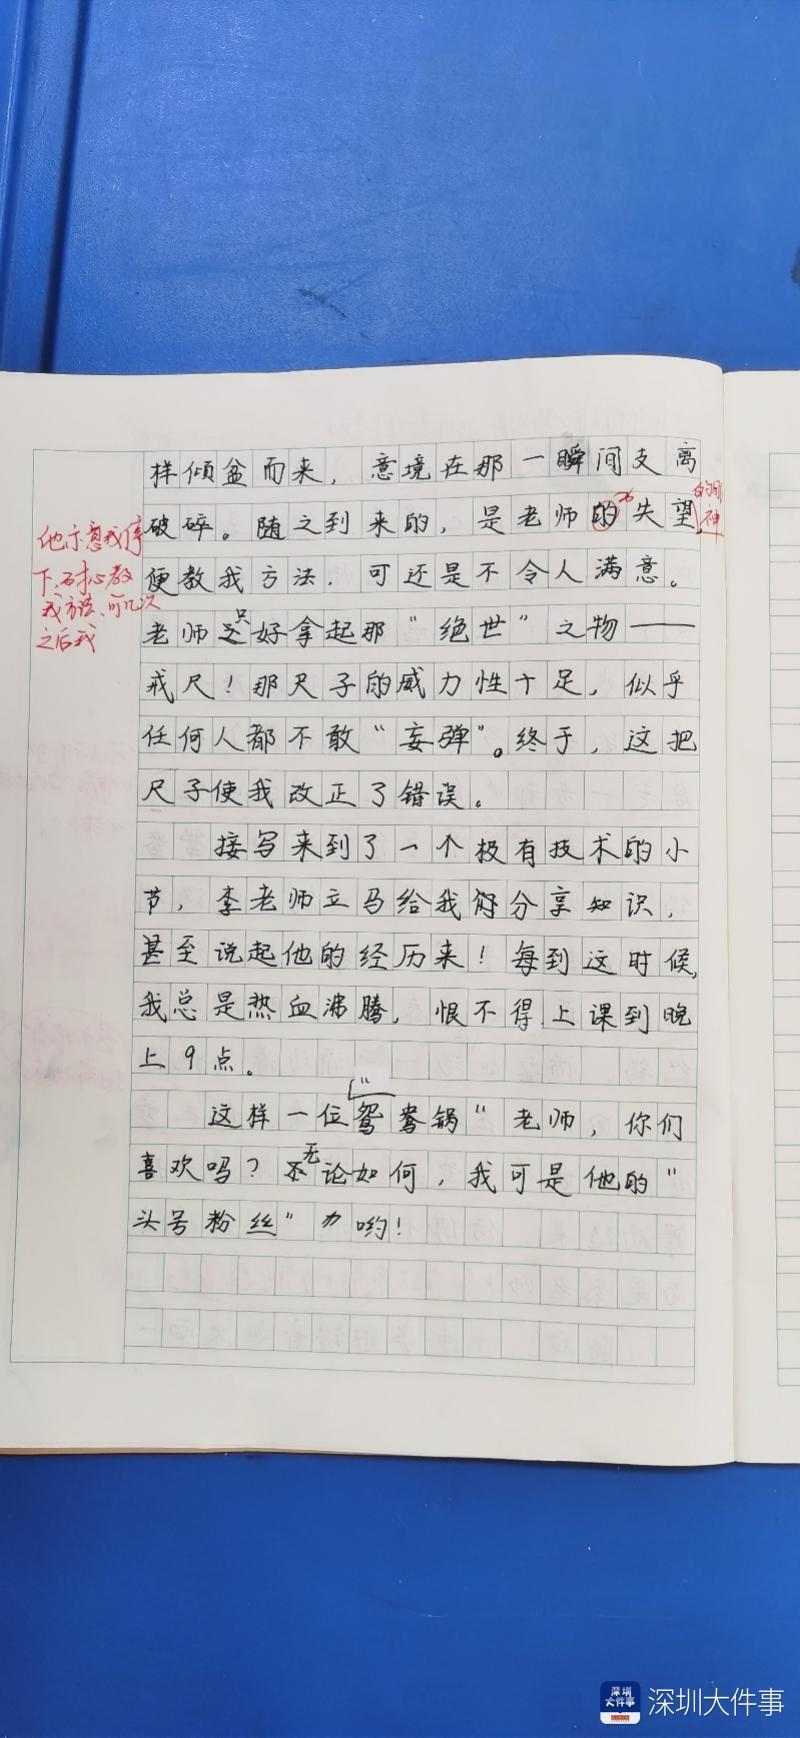 样倾盆而来，意境在那一瞬间支离
破碎。随之到来的，是老师的失望，
神
他示意我停
下，耐心教
我方法，可几次
之后我
便教我方法，可还是不令人满意。
老师只好拿起那“绝世”之物——
戒尺！那尺子的威力性十足，似乎
任何人都不敢“妄弹”。终于，这把
尺子使我改正了错误。
接写来到了一个极有技术的小
节，李老师立马给我们分享知识，
甚至说起他的经历来！每到这时候，
我总是热血沸腾，恨不得上课到晚
上9点。
这样一位“鸳鸯锅”老师，你们
喜欢吗？无论如何，我可是他的“
头号粉丝”哟！
深圳大件事
深圳大件事